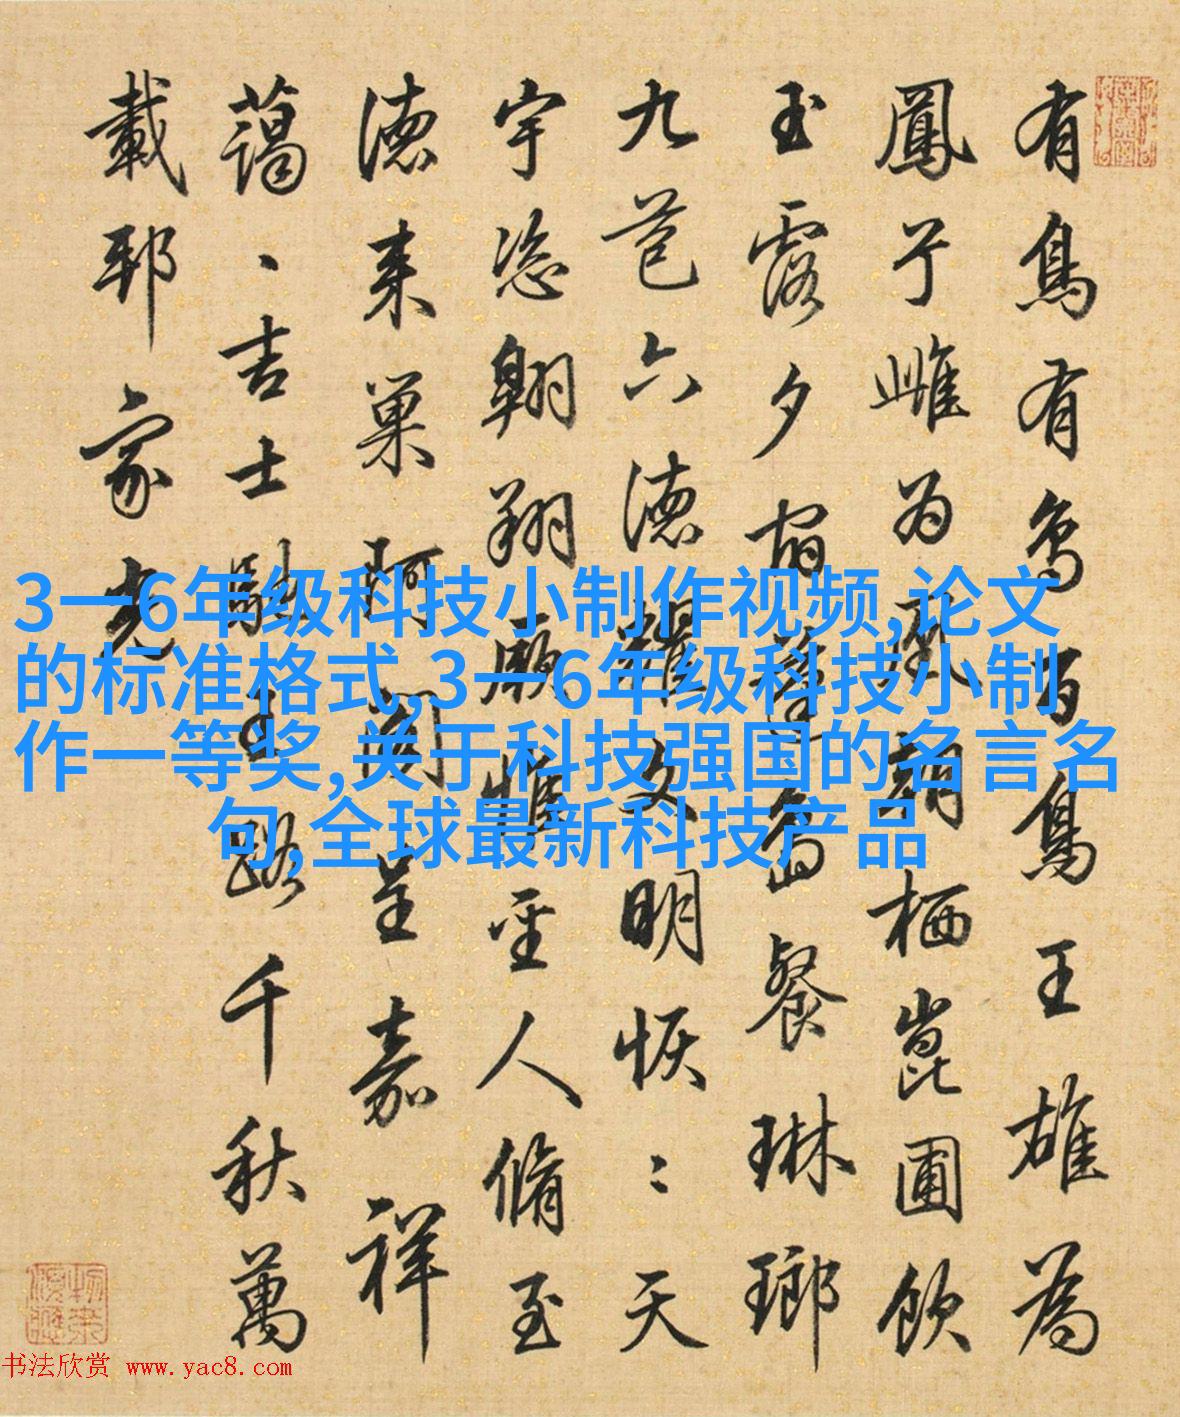 有鳥有鳥百鳥王雄為
鳳兮雌为凰朝栖崑圃飲
玉露夕宿島餐琳瑯
九苞六德耀文明恢〻天
宇恣翱翔願惟聖人脩至
德来巢阿閣呈嘉祥
藹〻吉士王路千秋萬
載邦家光
3一6年级科技小制作视频,论文
的标准格式,3一6年级科技小制
作一等奖,关于科技强国的名言名
句,全球最新科技产品
书法欣赏 www.yac8.com